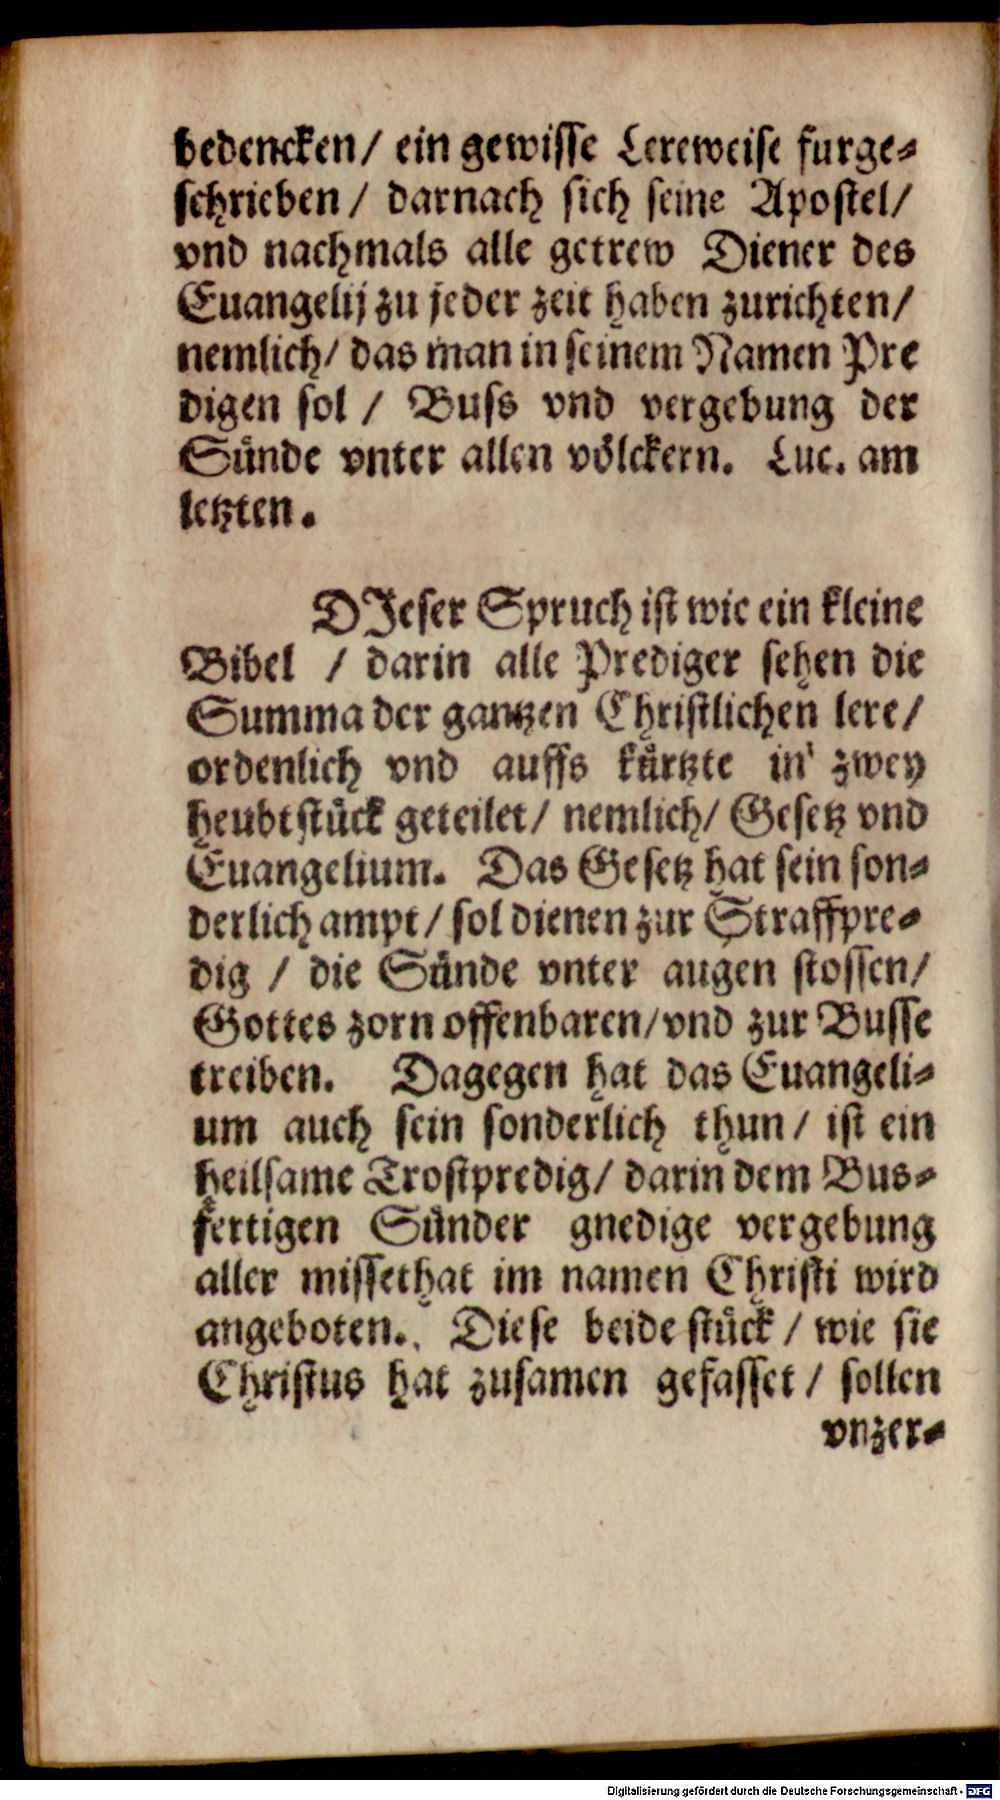 bedencken/ ein gewisse Lereweise furge-
schrieben / darnach sich seine Apostel/
vnd nachmals alle getrew Diener des
Euangelij zu jeder zeit haben zurichten/
nemlich/ das man in seinem Namen Pre
digen sol / Buss vnd vergebung der
Sünde vnter allen völckern. Luc. am
letzten.
DJeser Spruch ist wie ein kleine
Bibel / darin alle Prediger sehen die
Summa der gantzen Christlichen lere/
ordenlich vnd auffs kürtzte in zwey
heubtstück geteilet/ nemlich/ Gesetz vnd
Euangelium. Das Gesetz hat sein son-
derlich ampt/ sol dienen zur Straffpre-
dig / die Sünde vnter augen stossen/
Gottes zorn offenbaren/vnd zur Busse
treiben. Dagegen hat das Euangeli-
um auch sein sonderlich thun/ ist ein
heilsame Trostpredig/ darin dem Bus-
fertigen Sünder gnedige vergebung
aller missethat im namen Christi wird
angeboten. Diese beide stück / wie sie
Christus hat zusamen gefasset / sollen
vnzer-
Digitalisierung gefördert durch die Deutsche Forschungsgemeinschaft - DFG